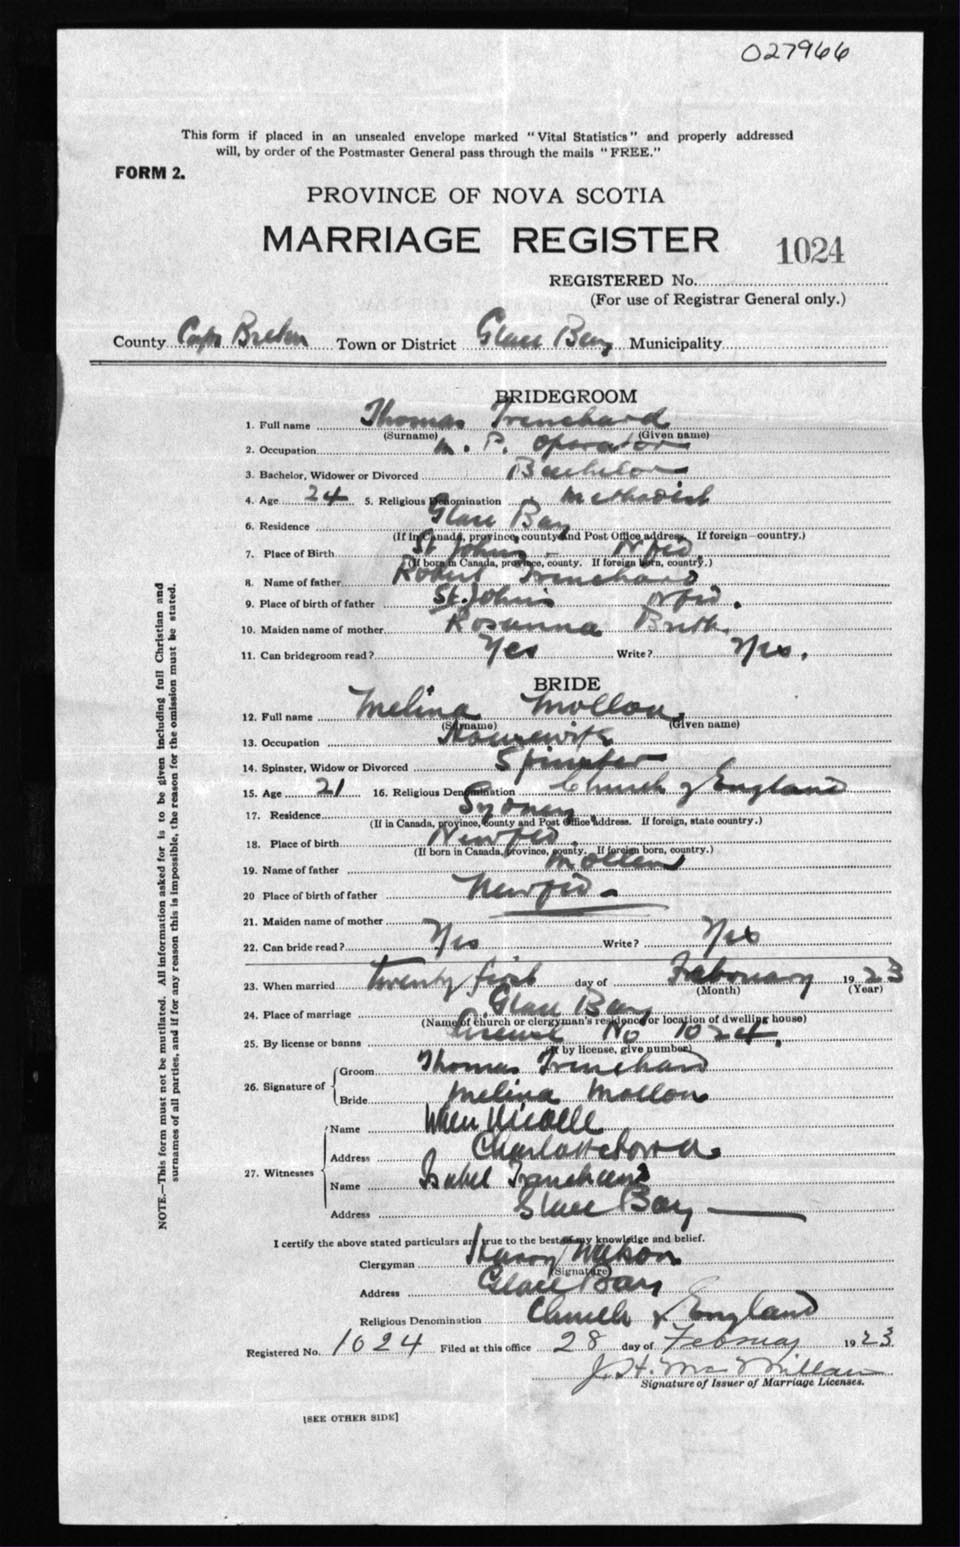 027966
This form if placed in an unsealed envelope marked "Vital Statistics" and properly addressed
will, by order of the Postmaster General pass through the mails "FREE."
FORM 2.
PROVINCE OF NOVA SCOTIA
MARRIAGE REGISTER 1024
REGISTERED No.
(For use of Registrar General only.)
County Cape Breton Town or District Glace Bay Municipality
BRIDEGROOM
1. Full name Thomas Trenchard
(Surname) (Given name)
2. Occupation M. P. Operator
3. Bachelor, Widower or Divorced Bachelor
4. Age 24 5. Religious Denomination Methodist
6. Residence Glace Bay
(If in Canada, province, county and Post Office address. If foreign—country.)
7. Place of Birth St Johns - Nfld.
(If born in Canada, province, county. If foreign born, country.)
8. Name of father Robert Trenchard
9. Place of birth of father St. Johns Nfld.
10. Maiden name of mother Rosanna
11. Can bridegroom read? Yes Write? Yes.
BRIDE
12. Full name Melina Mollon
(Surname) (Given name)
13. Occupation Housewife
14. Spinster, Widow or Divorced Spinster
15. Age 21 16. Religious Denomination Church of England
17. Residence Sydney
(If in Canada, province, county and Post Office address. If foreign, state country.)
18. Place of birth Newfld.
(If born in Canada, province, county. If foreign born, country.)
19. Name of father Mollon
20 Place of birth of father Newfld
21. Maiden name of mother
22. Can bride read? Yes Write? Yes
23. When married twenty first day of February 1923
(Month) (Year)
24. Place of marriage Glace Bay
(Name of church or clergyman's residence or location of dwelling house)
25. By license or banns License No 1024.
(If by license, give number)
26. Signature of Groom Thomas Trenchard
Bride Melina Mollon
27. Witnesses Name
Address Charlottetown
Name Isabel Trenchard
Address Glace Bay
I certify the above stated particulars are true to the best of my knowledge and belief.
Clergyman
(Signature)
Address Glace Bay
Religious Denomination Church of England
Registered No. 1024 Filed at this office 28 day of February 1923
J. H. McMillan
Signature of Issuer of Marriage Licenses.
[SEE OTHER SIDE]
NOTE.—This form must not be mutilated. All information asked for is to be given including full Christian and
surnames of all parties, and if for any reason this is impossible, the reason for the omission must be stated.